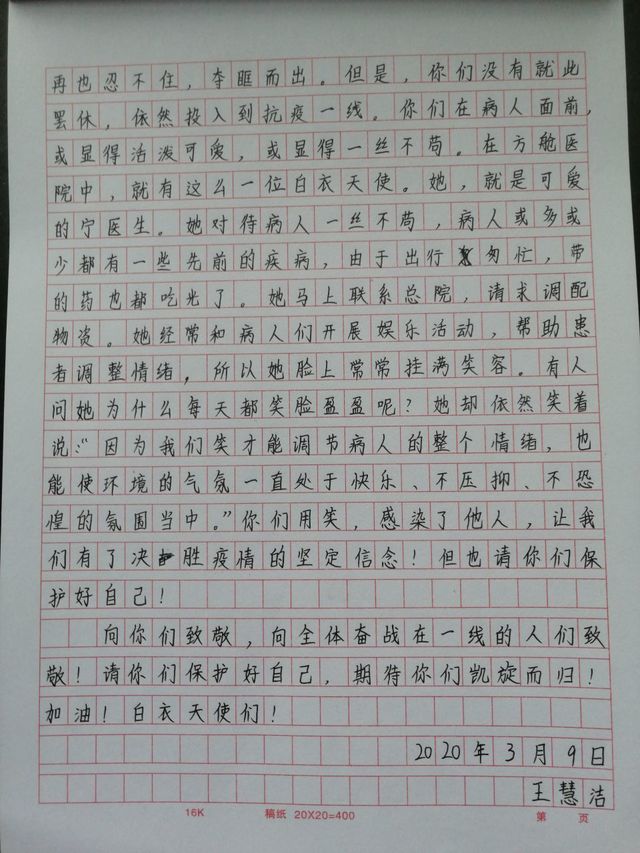 再也忍不住，夺眶而出。但是，你们没有就此
罢休，依然投入到抗疫一线。你们在病人面前，
或显得活泼可爱，或显得一丝不苟。在方舱医
院中，就有这么一位白衣天使。她，就是可爱
的宁医生。她对待病人一丝不苟，病人或多或
少都有一些先前的疾病，由于出行匆忙，带
的药也都吃光了。她马上联系总院，请求调配
物资。她经常和病人们开展娱乐活动，帮助患
者调整情绪，所以她脸上常常挂满笑容。有人
问她为什么每天都笑脸盈盈呢？她却依然笑着
说：“因为我们笑才能调节病人的整个情绪，也
能使环境的气氛一直处于快乐、不压抑、不恐
惶的氛围当中。”你们用笑，感染了他人，让我
们有了决胜疫情的坚定信念！但也请你们保
护好自己！
向你们致敬，向全体奋战在一线的人们致
敬！请你们保护好自己，期待你们凯旋而归！
加油！白衣天使们！
2020年3月9日
王慧洁
16K 稿纸 20X20=400 第 页